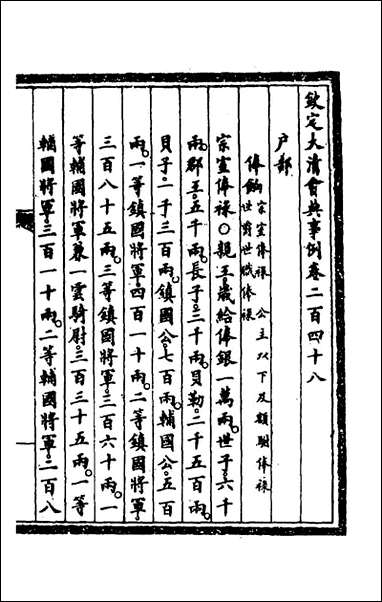 欽定大清會典事例卷二百四十八
户部
俸餉宗室俸祿　公主以下及額駙俸祿
世爵世職俸祿
宗室俸祿○親王歲給俸銀一萬兩。世子。六千
兩。郡王。五千兩。長子。三千兩。貝勒。二千五百兩。
貝子。一千三百兩。鎮國公。七百兩。輔國公。五百
兩。一等鎮國將軍。四百一十兩。二等鎮國將軍。
三百八十五兩。三等鎮國將軍。三百六十兩。一
等輔國將軍兼一雲騎尉。三百三十五兩。一等
輔國將軍。三百一十兩。二等輔國將軍。二百八